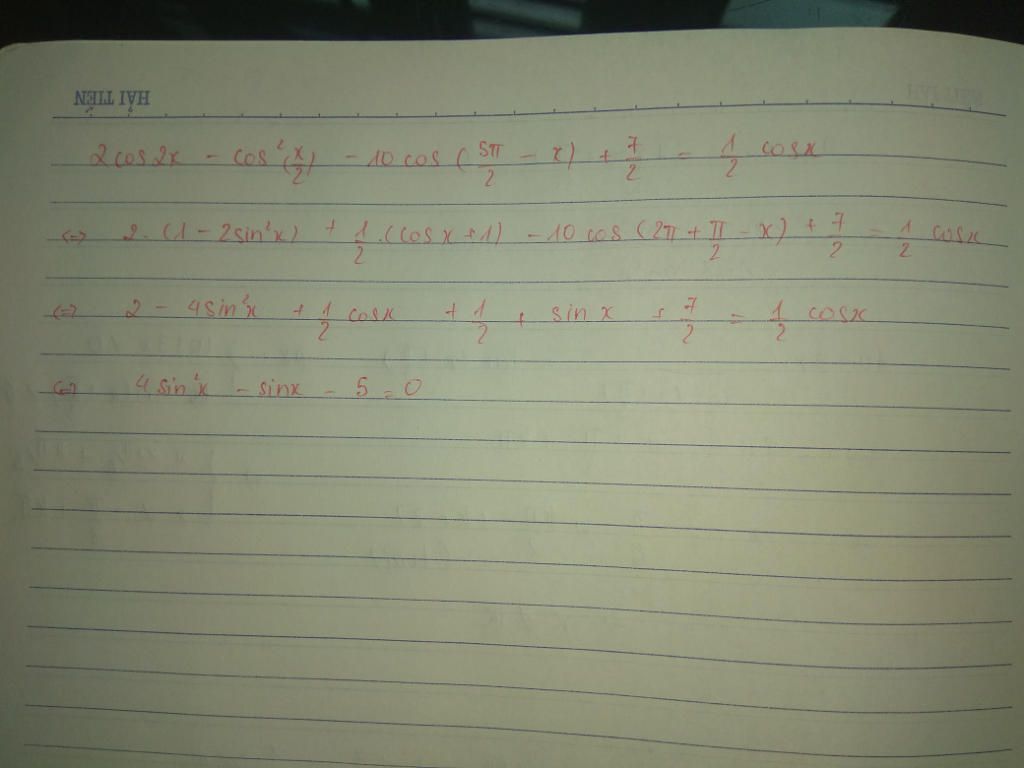 HẢI TIẾN
2cos2x - cos²(x/2) - 10 cos (5π/2 - x) + 7/2 = 1/2 cosx
<=> 2. (1 - 2sin²x) + 1/2 .(cosx+1) - 10 cos (2π + π/2 - x) + 7/2 = 1/2 cosx
<=> 2 - 4sin²x + 1/2 cosx + 1/2 + sin x + 7/2 = 1/2 cosx
<=> 4sin²x - sinx - 5 = 0